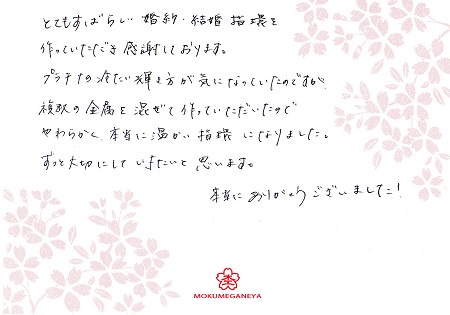 とてもすばらしい 婚約・結婚 指環を
作っていただき 感謝しております。
プラチナの冷たい輝き方が気になっていたのですが、
複数の金属を混ぜて作っていただいたので
やわらかく、本当に温かい指環になりました。
ずっと大切にしていきたいと思います。
本当にありがとうございました！
MOKUMEGANEYA